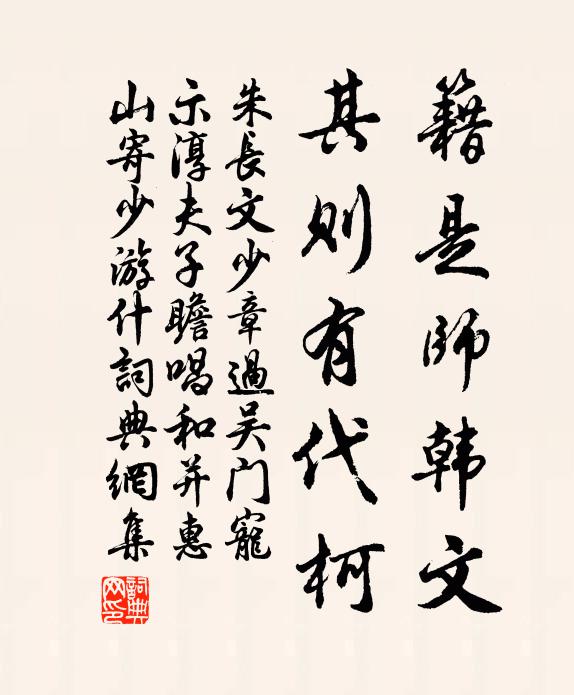 籍是师韩文
其则有代柯
朱長文少章過吴门寵
示淳夫子瞻唱和并惠
山寄少游什詞典網集
詞典网印